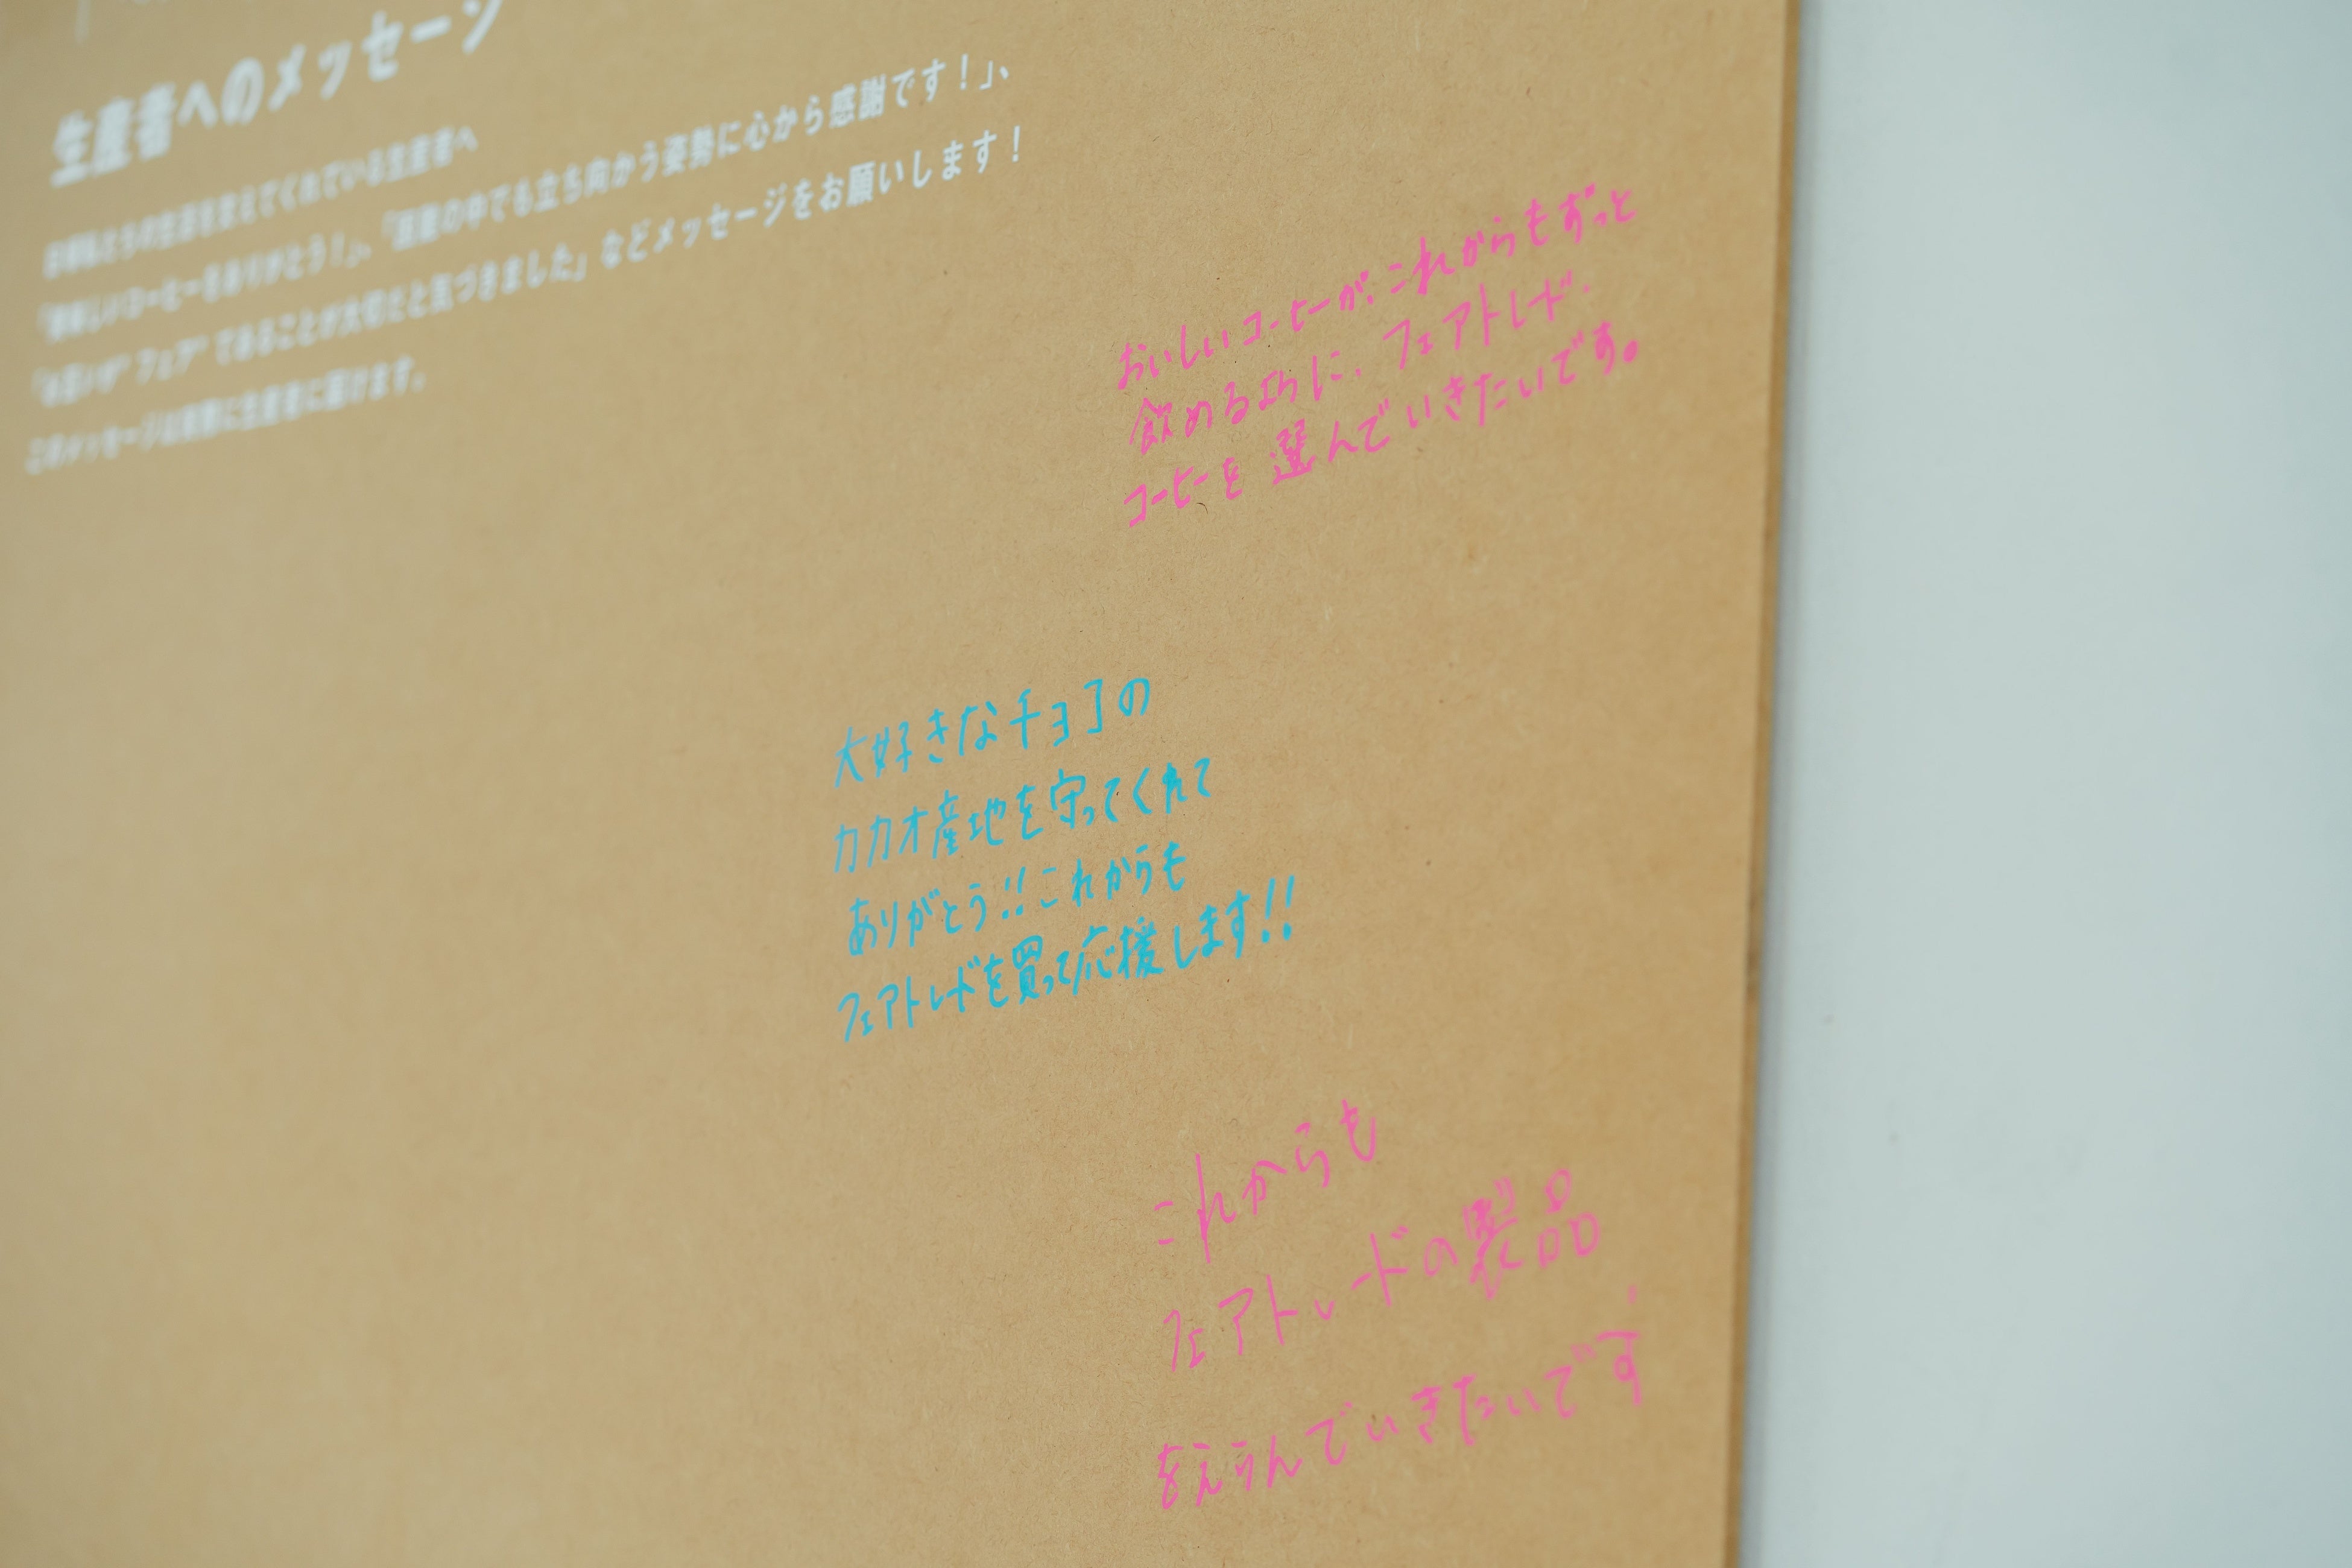 生産者へのメッセージ
日頃私たちの生活を支えてくれている生産者へ
「美味しいコーヒーをありがとう！」、「困難の中でも立ち向かう姿勢に心から感謝です！」、
「お互いが"フェア"であることが大切だと気づきました」などメッセージをお願いします！
このメッセージは実際に生産者に届けます。
おいしいコーヒーが、これからもずっと
飲めるように、フェアトレード
コーヒーを選んでいきたいです。
大好きなチョコの
カカオ産地を守ってくれて
ありがとう!!これからも
フェアトレードを買って応援します!!
これからも
フェアトレードの製品
をえらんでいきたいです